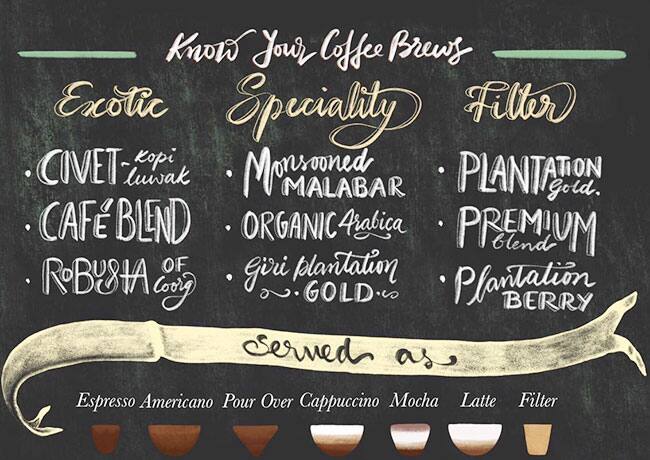 Know Your Coffee Brews
Exotic
CIVET - Kopi luwak
CAFÉ BLEND
ROBUSTA OF Coorg
Speciality
Monsooned
MALABAR
ORGANIC Arabica
Giri plantation
GOLD
Filter
PLANTATION
Gold.
PREMIUM
blend
Plantation
BERRY
served as
Espresso Americano Pour Over Cappuccino Mocha Latte Filter